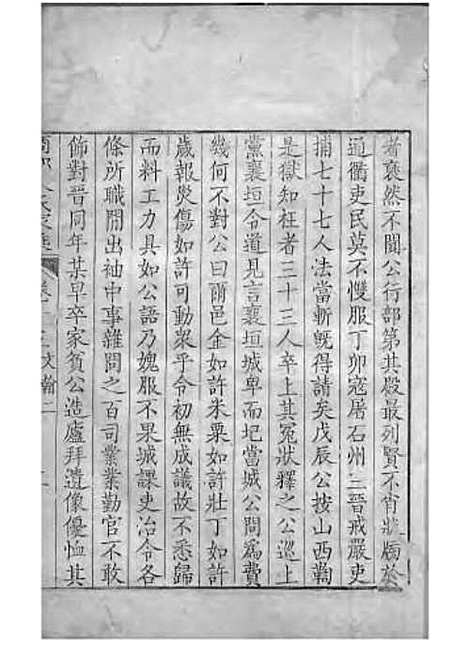 者裒然不聞公行部第其殿最列賢不肖狀燭於
通衢吏民莫不慢服丁卯寇屠石州三晉戒嚴吏
捕七十七人法當斬既得請矣戊辰公按山西鞫
是獄知枉者三十三人卒上其冤狀釋之公巡上
黨襄垣令道見言襄垣城卑而圮當城公問為費
幾何不對公曰爾邑金如許米粟如許壯丁如許
歲報災傷如許可動衆乎令初無成議故不悉歸
而料工力具如公語乃媿服不果城課吏治令各
條所職閒出袖中事雜問之百司業業勤官不敢
飾對晉同年某早卒家貧公造廬拜遺像優恤其
文翰二